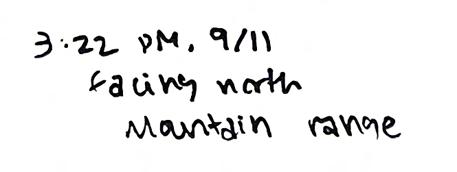 3:22 PM, 9/11
facing north
Mountain range